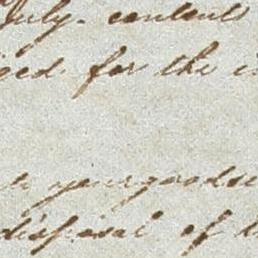 July. contents
for the
your goods
disposal of